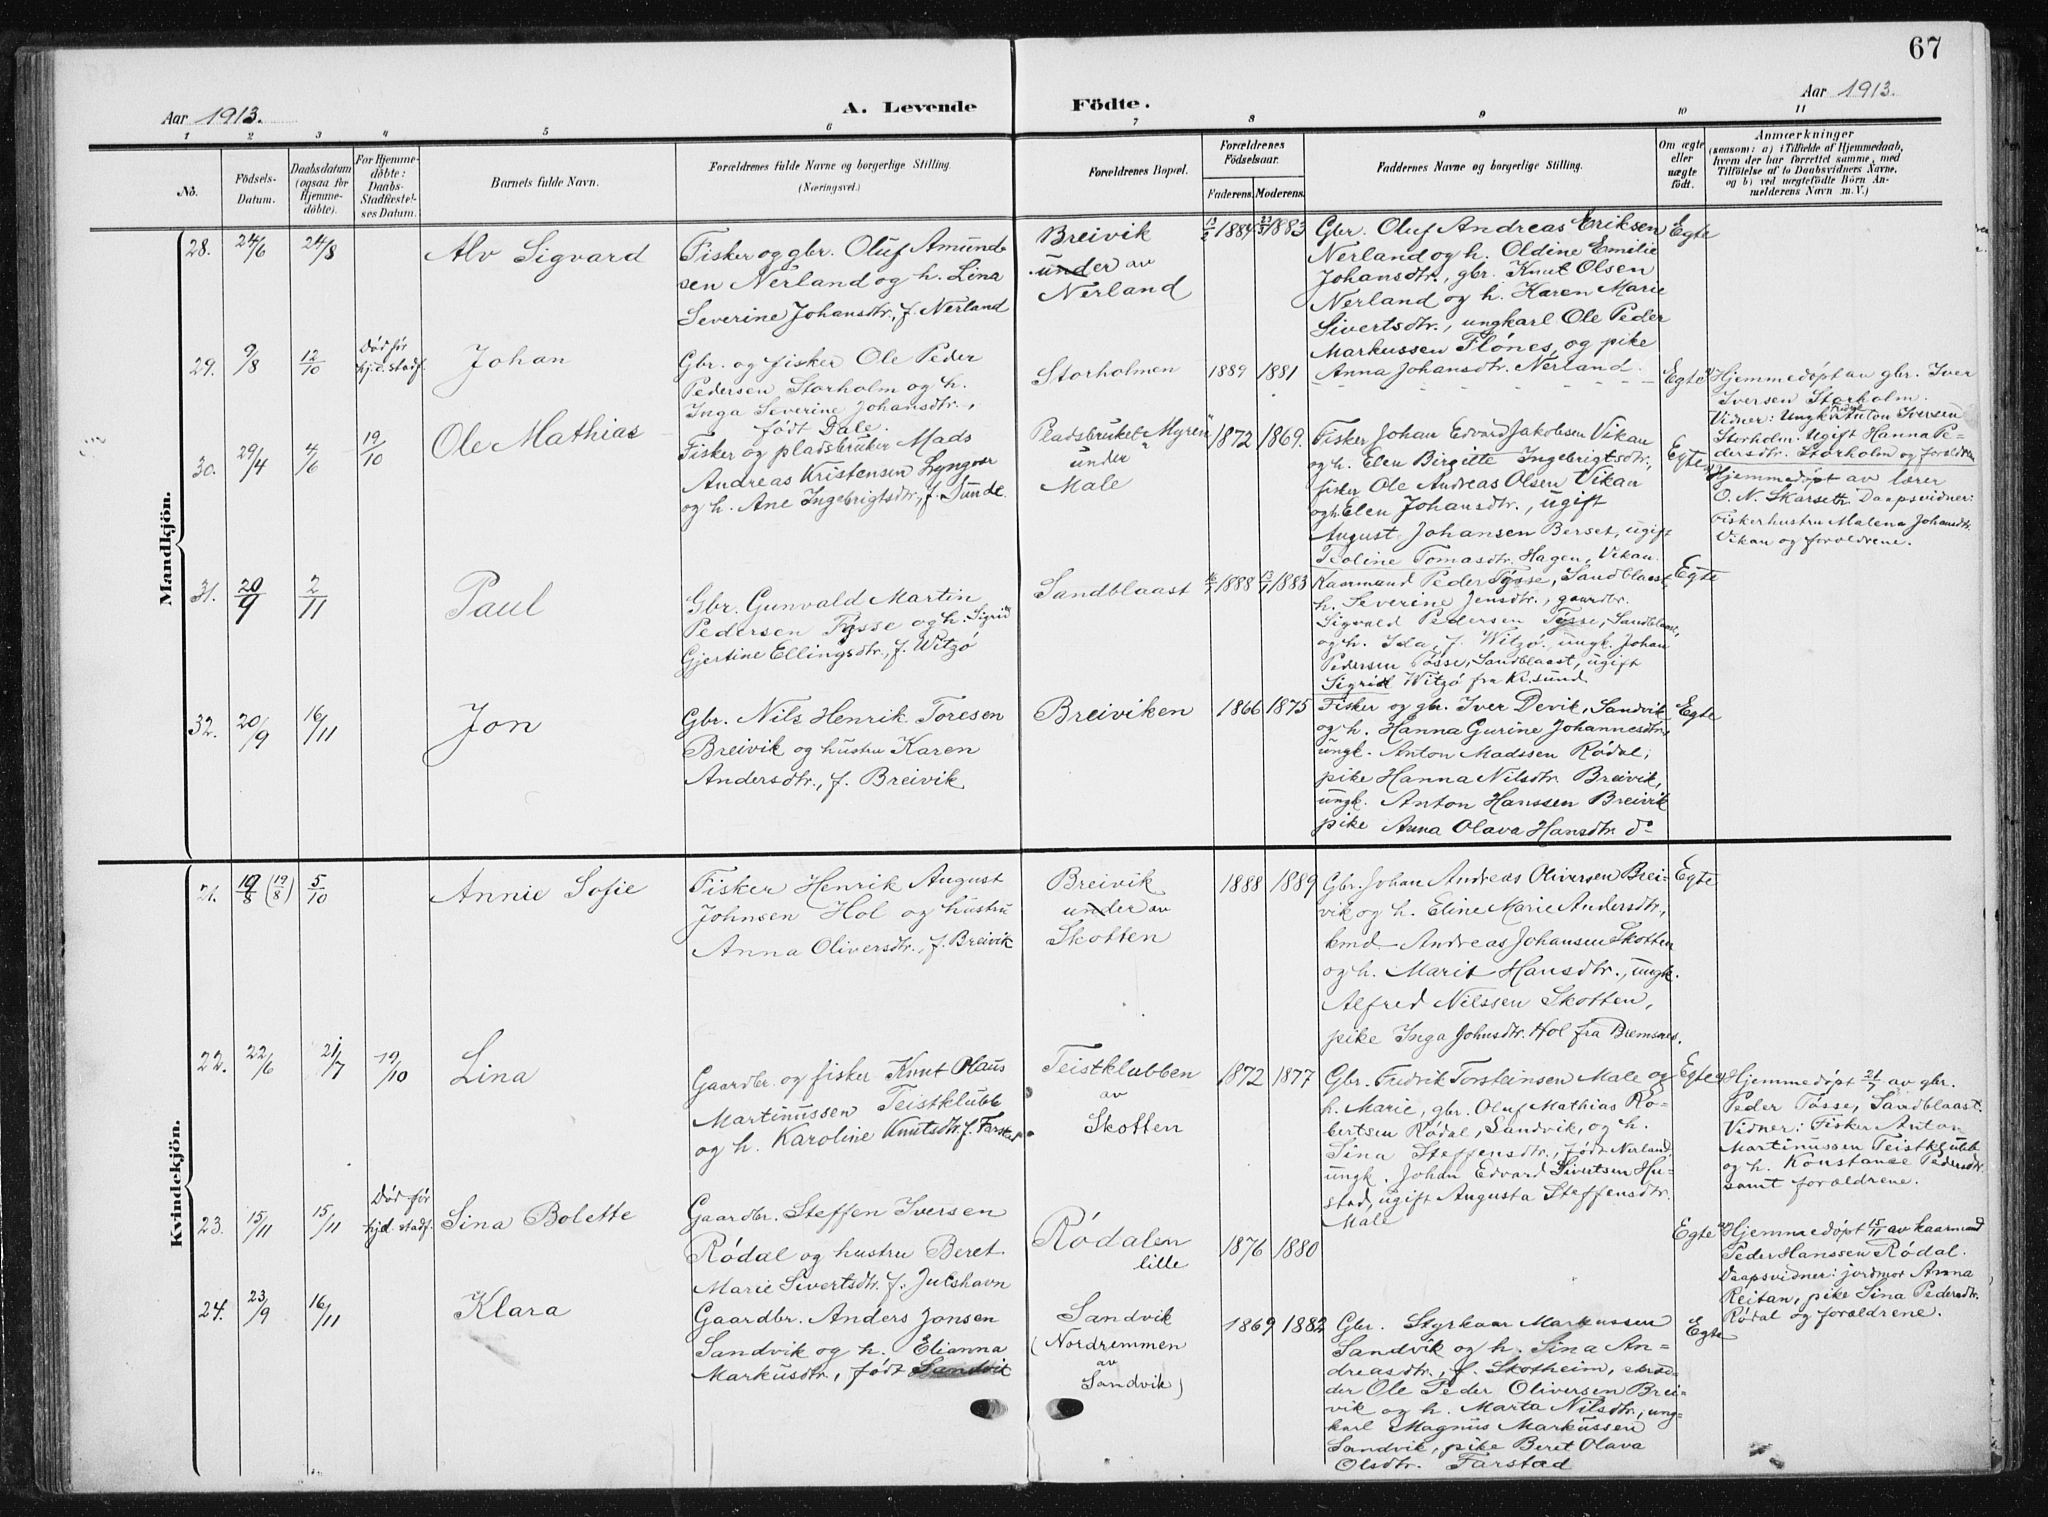 67
Aar 1913.
A. Levende Födte.
Aar 1913.
1 2 3 4 5 6 7 8 9 10 11
No.
Födsels-
Datum.
Daabsdatum
(ogsaa for
Hjemme-
döbte).
For Hjemme-
döbte:
Daabs-
Stadfæstel-
ses Datum.
Barnets fulde Navn.
Forældrenes fulde Navne og borgerlige Stilling.
(Næringsvei.)
Forældrenes Bopæl.
Forældrenes
Födselsaar.
Faderens. Moderens.
Faddernes Navne og borgerlige Stilling.
Om ægte
eller
uægte
födt.
Anmærkninger
(saasom: a) i Tilfælde af Hjemmedaab,
hvem der har forrettet samme, med
Tilföielse af to Daabsvidners Navne,
og b) ved uægtefödte Börn An-
melderens Navn m. V.)
Mandkjön.
28. 24/6 24/8
Alv Sigvard
Fisker og gbr. Oluf Amund-
sen Nerland og h. Lina
Severine Johansdtr., f. Nerland
Breivik
under av
Nerland
13/2 1884 23/3 1883
Gbr. Oluf Andreas Eriksen
Nerland og h. Oldine Emilie
Johansdtr., gbr. Knut Olsen
Nerland og h. Karen Marie
Sivertsdtr., ungkarl Ole Peder
Markussen Flónes, og pike
Anna Johansdtr. Nerland.
Egte
29. 9/8 12/10
Død før
hj.d. stadf.
Johan
Gbr. og fisker Ole Peder
Pedersen Storholm og h.
Inga Severine Johansdtr.,
født Dale.
Storholmen
1889 1881
Egte
Hjemmedøpt av gbr. Iver
Iversen Storholm.
Vidner: Ungk. Anton Iversen
Storholm. Ugift Hanna Pe-
dersdtr. Storholm og forældrene
30. 29/4 4/6 19/10
Ole Mathias
Fisker og pladsbruker Mads
Andreas Kristensen Lyngvær
og h. Ane Ingebrigtsdtr., f. Sunde.
Pladsbruket "Myren"
under
Male
1872 1869.
Fisker Johan Edvard Jakobsen Vikan
og h. Elen Birgitte Ingebrigtsdtr.,
fisker Ole Andreas Olsen Vikan
og h. Elen Johansdtr., ugift
August Johansen Berset, ugift
Teoline Tomasdtr. Hagen, Vikan.
Egte
Hjemmedøpt av lærer
O. N. Skarseth. Daapsvidner:
Fiskerhustru Malena Johansdtr.
Vikan og forældrene.
31. 20/9 2/11
Paul
Gbr. Gunvald Martin
Pedersen Tøsse og h. Sigrid
Gjertine Ellingsdtr., f. Witzó
Sandblaast
1888 1883
Kaarmand Peder Tøsse, Sandblaast,
h. Severine Jensdtr., gaardbr.
Sigvald Pedersen Tøsse, Sandblaast,
og h. Ida, f. Witzó, ungk. Johan
Pedersen Tósse, Sandblaast, ugift
Sigrid Witzó fra Kr.sund.
Egte
32. 20/9 16/11
Jon
Gbr. Nils Henrik Toresen
Breivik og hustru Karen
Andersdtr., f. Breivik
Breiviken
1866 1875
Fisker og gbr. Iver Devik, Sandvik
og h. Hanna Gurine Johannesdtr.,
ungk. Anton Madssen Ródal,
pike Hanna Nilsdtr. Breivik,
ungk. Anton Hanssen Breivik
pike Anna Olava Hansdtr. do
Egte
Kvindekjön.
21. 19/8 (19/8) 5/10
Annie Sofie
Fisker Henrik August
Johnsen Hol og hustru
Anna Oliversdtr., f. Breivik
Breivik
under av
Skotten
1888 1889
Gbr. Johan Andreas Oliversen Brei-
vik og h. Eline Marie Andersdtr.,
kmd. Andreas Johansen Skotten
og h. Marit Hansdtr., ungk.
Alfred Nilssen Skotten,
pike Inga Johnsdtr. Hol fra Bremsnes.
Egte
22. 22/6 21/7 19/10
Lina
Gaardbr. og fisker Knut Olaus
Martinussen Teistklubb
og h. Karoline Knutsdtr. f. Farstad
Teistklubben
av
Skotten
1872 1877
Gbr. Fredrik Torsteinsen Male og
h. Marie, gbr. Oluf Mathias Ro-
bertsen Ródal, Sandvik, og h.
Sina Steffensdtr., født Nerland,
ungk. Johan Edvard Sivertsen Hu-
stad, ugift Augusta Steffensdtr.
Male
Egte
Hjemmedøpt 21/7 av gbr.
Peder Tósse, Sandblaast.
Vidner: Fisker Anton
Martinussen Teistklubb
og h. Konstanse Pedersdtr.
samt forældrene.
23. 15/11 15/11
Død før
hjd. stadf.
Sina Bolette
Gaardbr. Steffen Iversen
Ródal og hustru Beret
Marie Sivertsdtr. f. Julshavn
Ródalen
lille
1876 1880
Egte
Hjemmedøpt 15/11 av kaarmand
Peder Hanssen Ródal.
Daapsvidner: jordmor Anna
Reitan, pike Sina Pedersdtr.
Ródal og forældrene.
24. 23/9 16/11
Klara
Gaardbr. Anders Jonsen
Sandvik og h. Elianna
Markusdtr., født Sandvik
Sandvik
(Nordremmen
av
Sandvik)
1869 1882
Gbr. Styrkaar Markussen
Sandvik og h. Sina An-
dreasdtr., f. Skotheim,
Ole Peder Oliversen Brei-
vik og h. Marta Nilsdtr., ung-
karl Magnus Markussen
Sandvik, pike Beret Olava
Olsdtr. Farstad
Egte